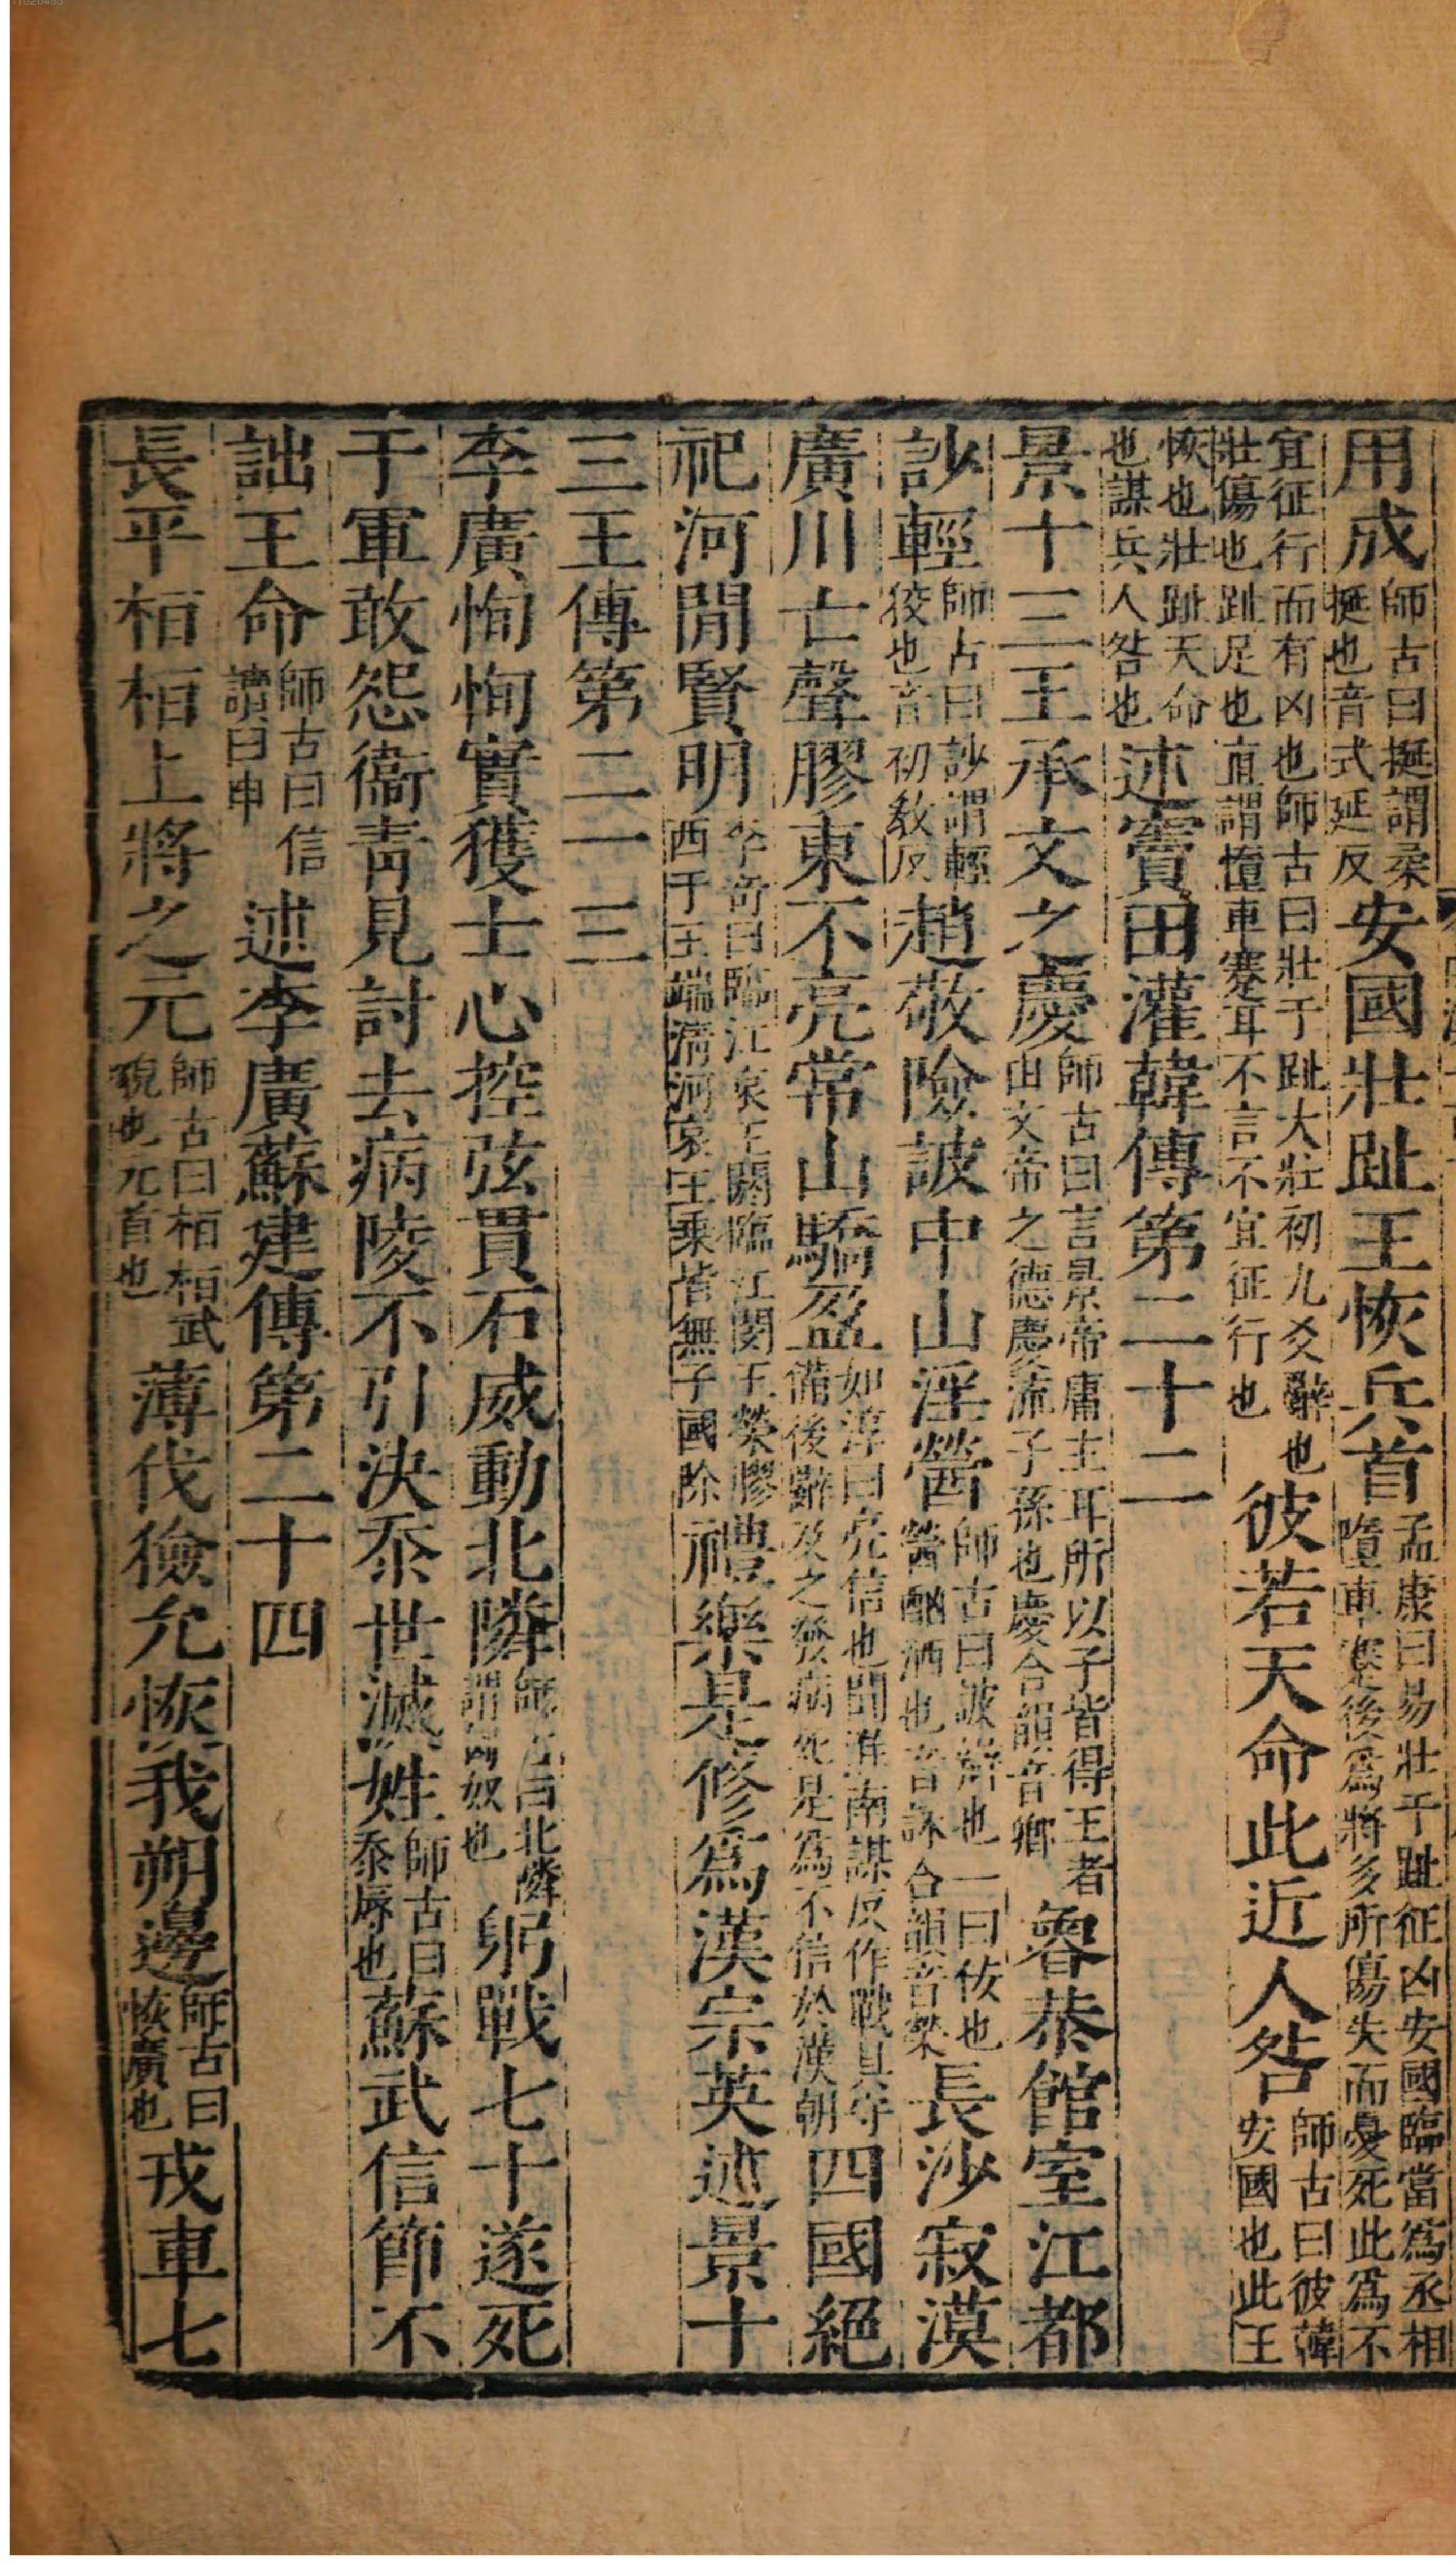 用成師古曰挻謂柔挻也音式延反安國壯趾王恢兵首孟康曰易壯于趾征凶安國臨當爲丞相墮車蹇後爲將多所傷失而憂死此爲不
宜征行而有凶也師古曰壯于趾大壯初九爻辭也壯傷也趾足也直謂墮車蹇耳不言不宜征行也彼若天命此近人咎師古曰彼韓安國也此王
恢也壯趾天命也謀兵人咎也述竇田灌韓傳第二十二
景十三王承文之慶師古曰言景帝庸主耳所以子皆得王者由文帝之德慶流子孫也慶合韻音鄉魯恭館室江都
訬輕師古曰訬謂輕狡也音初敎反趙敬險詖中山淫醟師古曰詖辯也一曰佞也醟酗酒也音詠合韻音榮長沙寂漠
廣川亡聲膠東不亮常山驕盈如淳曰亮信也聞淮南謀反作戰具守備後辭及之發病死是爲不信於漢朝四國絕
祀河閒賢明李奇曰臨江哀王閼臨江閔王榮膠西于王端淸河哀王乘皆無子國除禮樂是修爲漢宗英述景十
三王傳第二十三
李廣恂恂實獲士心控弦貫石威動北隣師古曰北隣謂匈奴也躬戰七十遂死
于軍敢怨衞靑見討去病陵不引決忝世滅姓師古曰忝辱也蘇武信節不
詘王命師古曰信讀曰申述李廣蘇建傳第二十四
長平桓桓上將之元師古曰桓桓武貌也元首也薄伐獫允恢我朔邊師古曰恢廣也戎車七